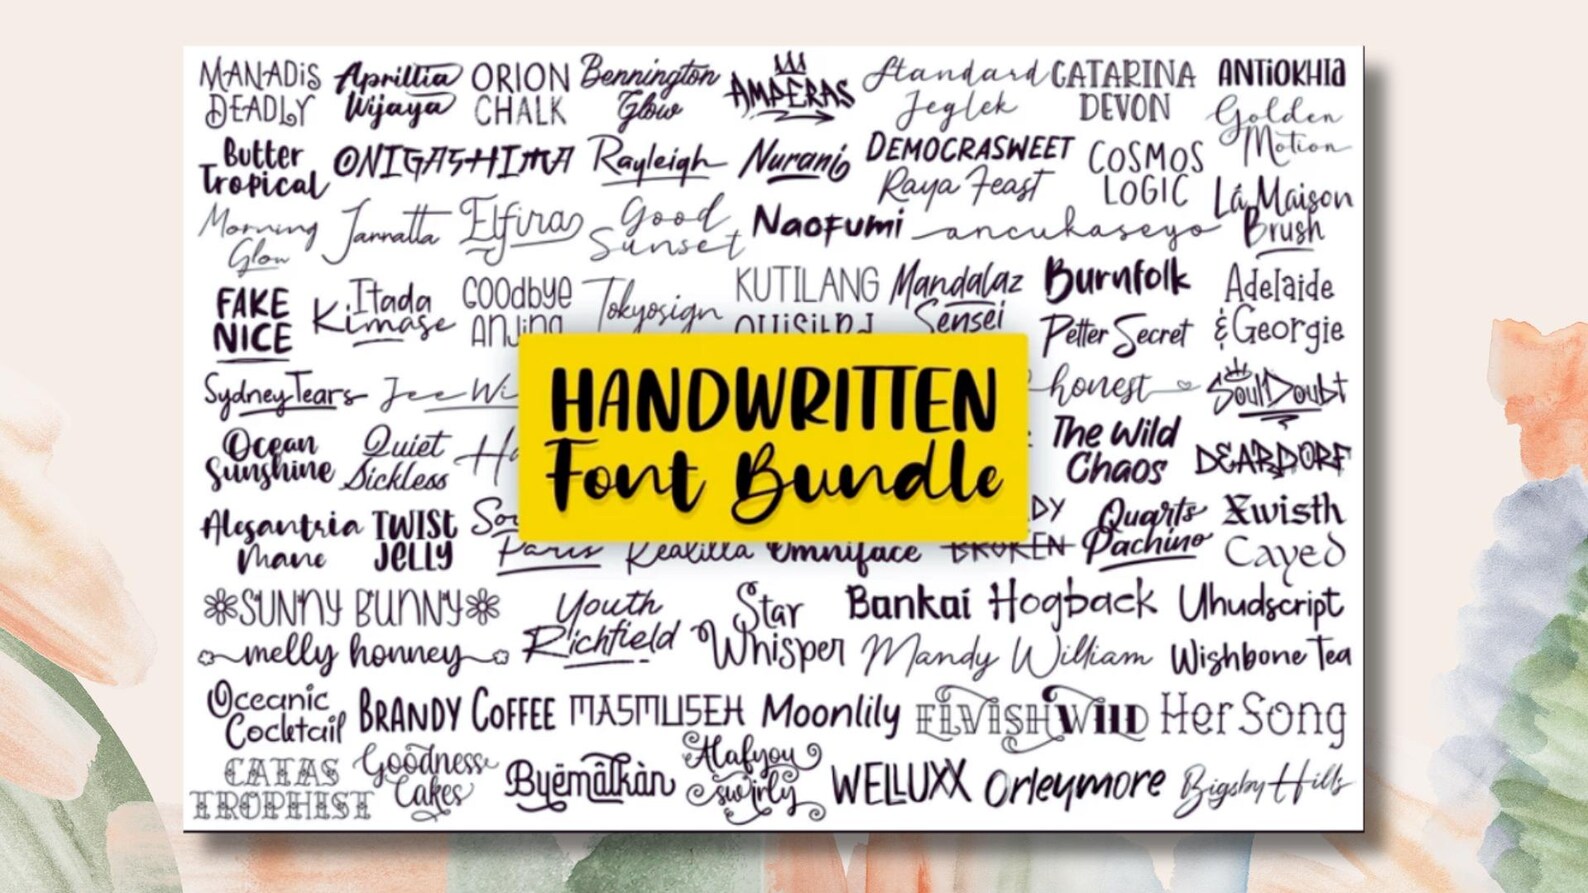 MANADIS DEADLY
Aprillia Wijaya
ORION CHALK
Bennington Glow
AMPERAS
Standard Jeglek
CATARINA DEVON
ANTIOKHIA
Golden Motion
Butter Tropical
ONIGASHIMA
Rayleigh
Nurani
DEMOCRASWEET
Raya Feast
COSMOS LOGIC
La Maison Brush
Morning Glow
Jannatta
Elfira
Good Sunset
Naofumi
ancukaseyo
FAKE NICE
Itada Kimase
GOOdbye ANjing
Tokyosign
KUTILANG
Mandalaz Sensei
Burnfolk
Petter Secret
Adelaide & Georgie
Sydney Tears
Jee Wi
HANDWRITTEN
Font Bundle
honest
Soul Doubt
Ocean Sunshine
Quiet Sickless
The Wild Chaos
DEARDORF
Alesantria Mane
TWIST JELLY
Paris
Realilla
Omniface
BROKEN
Quarts Pachino
Xwisth
Cayed
SUNNY BUNNY
Youth Richfield
Star Whisper
Bankai
Hogback
Uhudscript
melly honney
Mandy William
Wishbone Tea
Oceanic Cocktail
BRANDY COFFEE
MASMUSEH
Moonlily
ELVISH WILD
Her Song
CATAS TROPHIST
Goodness Cakes
Byēmātkàn
Alafyou swirly
WELLUXX
Orleymore
Bigsby Hills